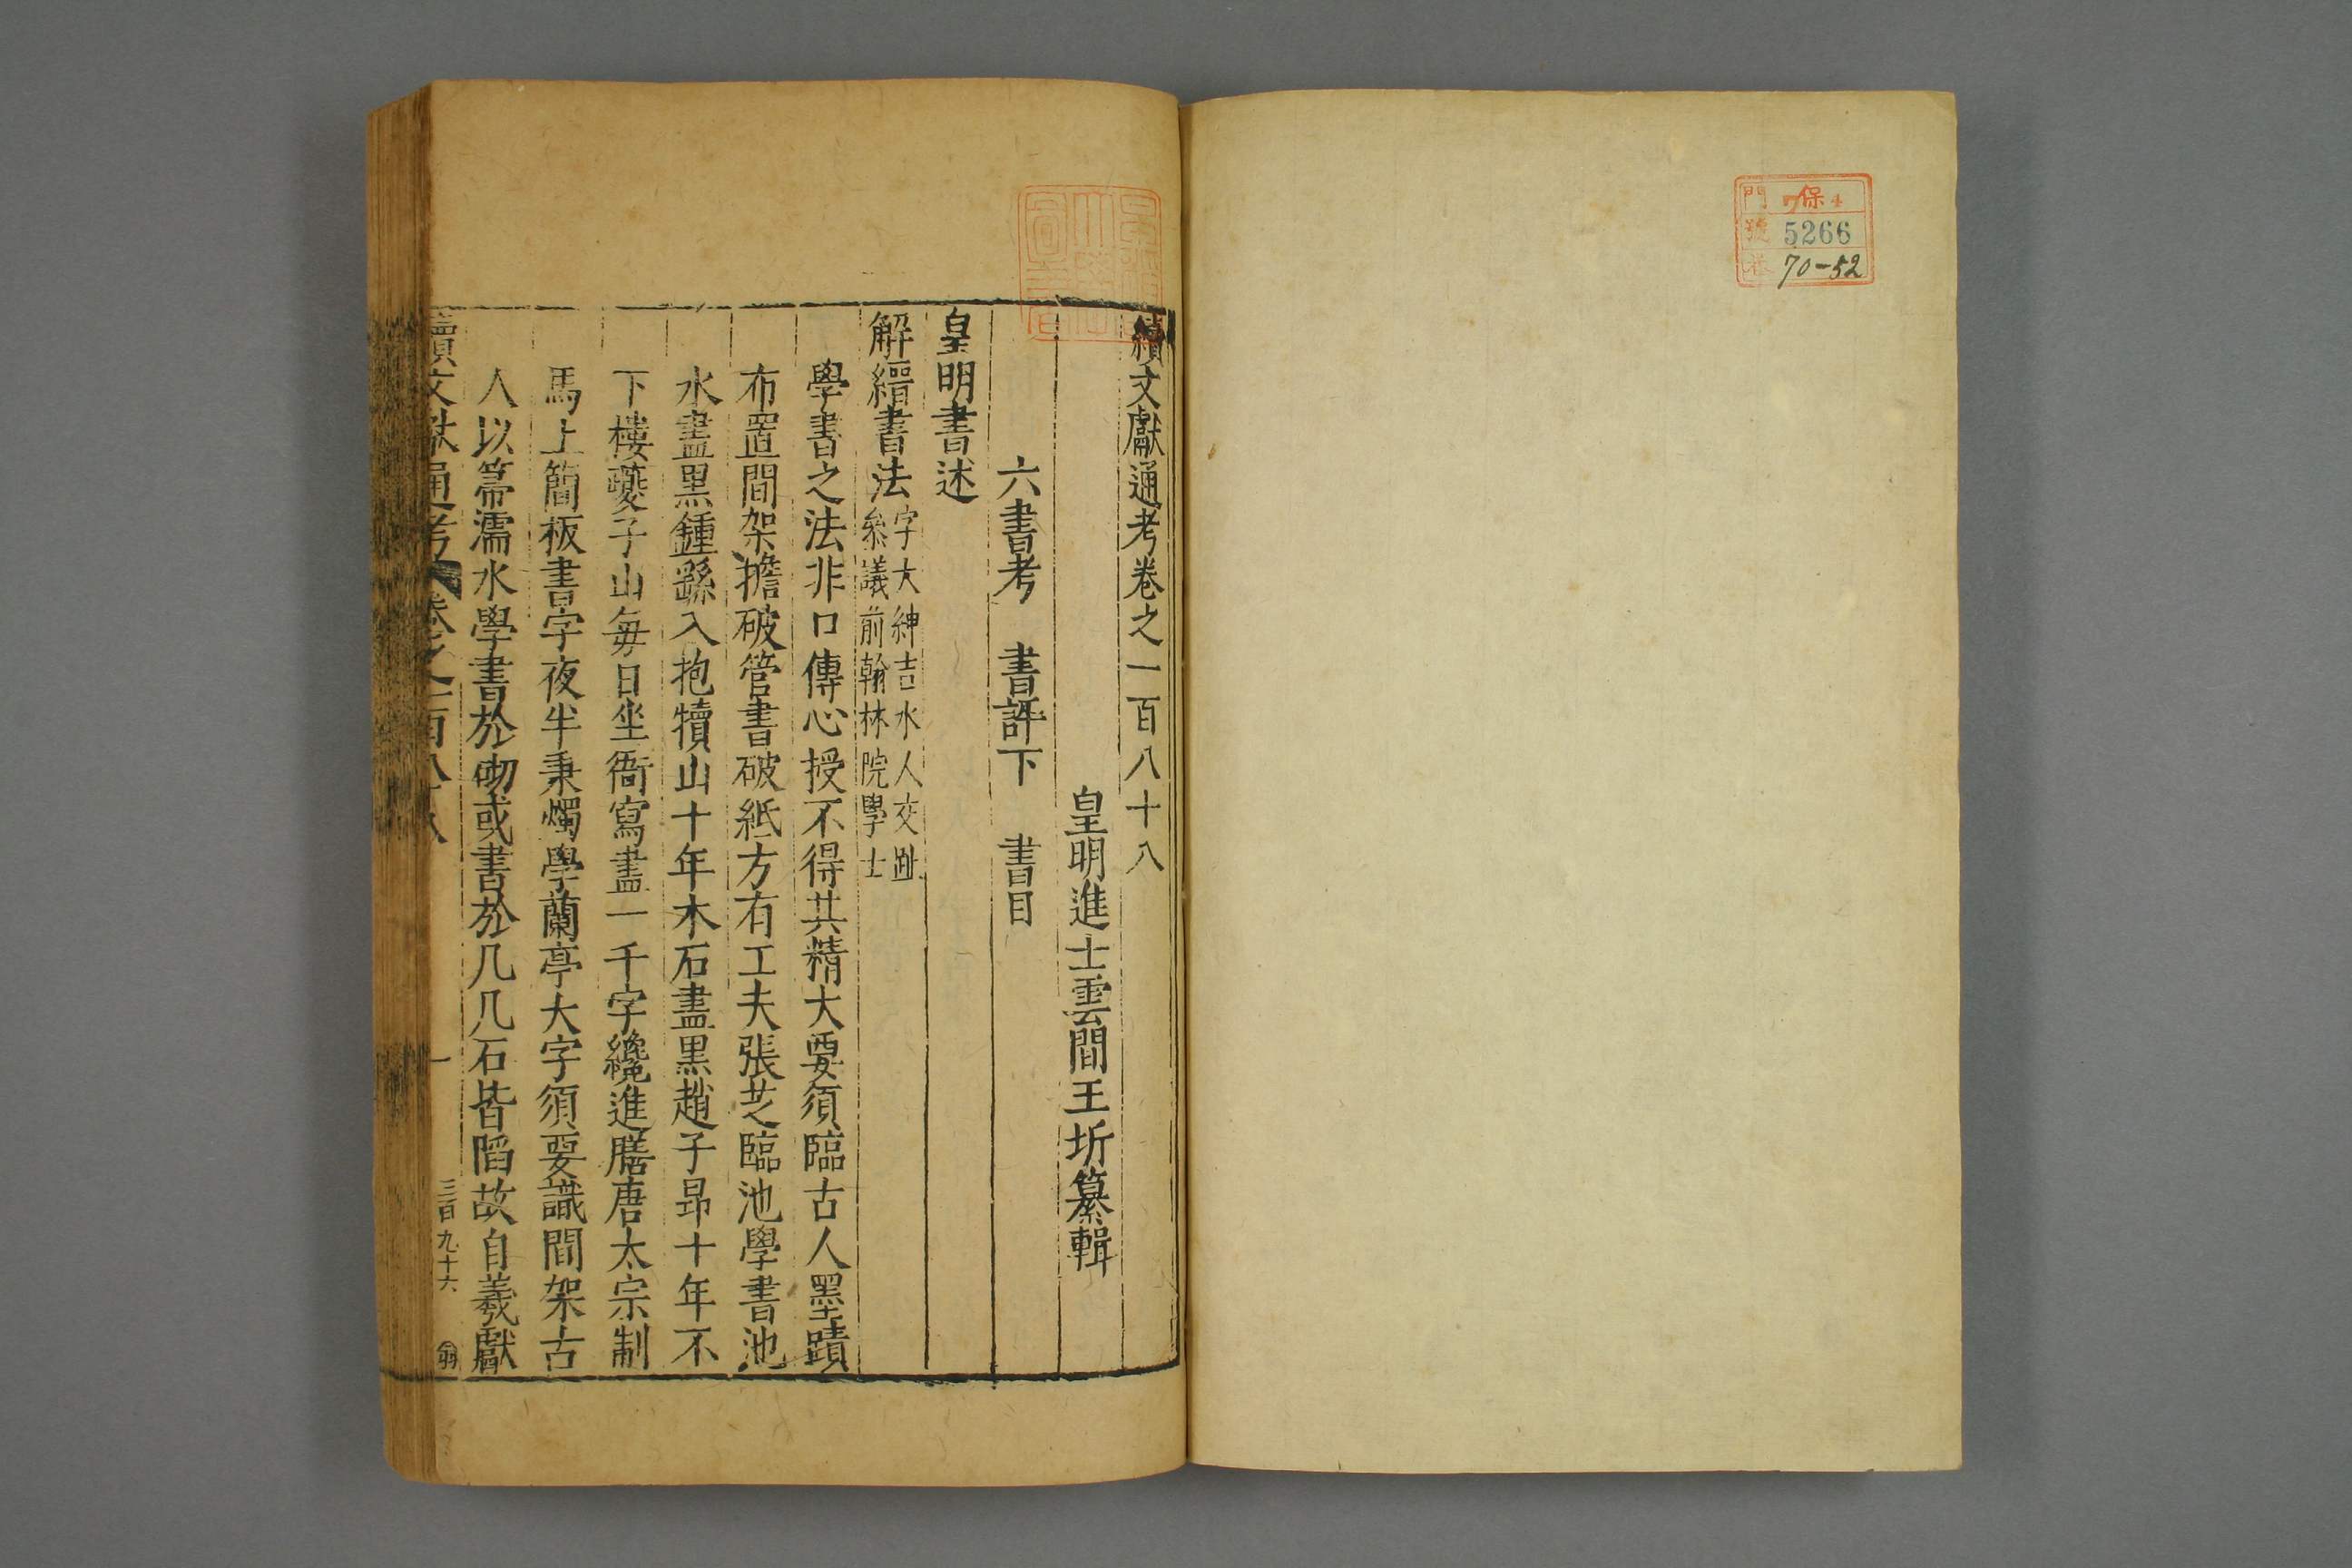 門 保 4
號 5266
70-52
續文獻通考卷之一百八十八
皇明進士雲間王圻纂輯
六書考 書評下 書目
皇明書述
解縉書法
字大紳吉水人交趾
叅議前翰林院學士
學書之法非口傳心授不得其精大要須臨古人墨蹟
布置間架擔破管書破紙方有工夫張芝臨池學書池
水盡黑鍾繇入抱犢山十年木石盡黑趙子昂十年不
下樓夔子山每日坐衙寫盡一千字纔進膳唐太宗制
馬上簡板書字夜半秉燭學蘭亭大字須要識間架古
人以箒濡水學書於砌或書於几几石皆陷故自羲獻
續文獻通考 卷之一百八十八 一 三百九十六